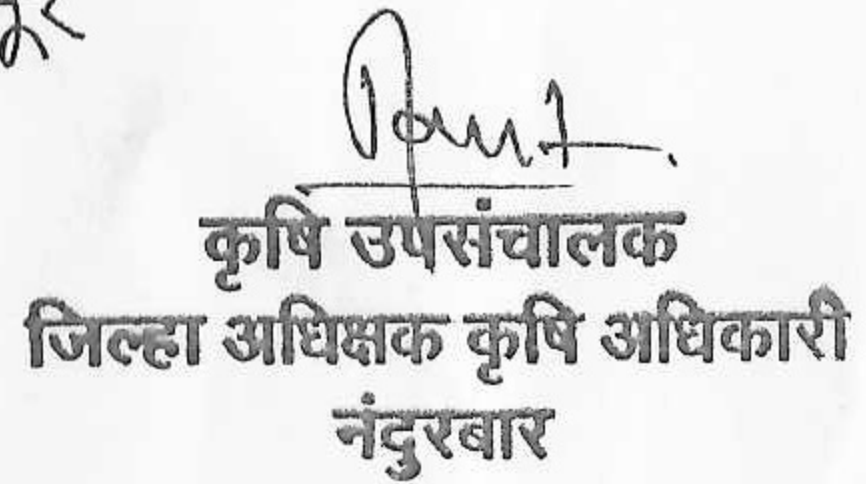 कृषि उपसंचालक
जिल्हा अधिक्षक कृषि अधिकारी
नंदुरबार